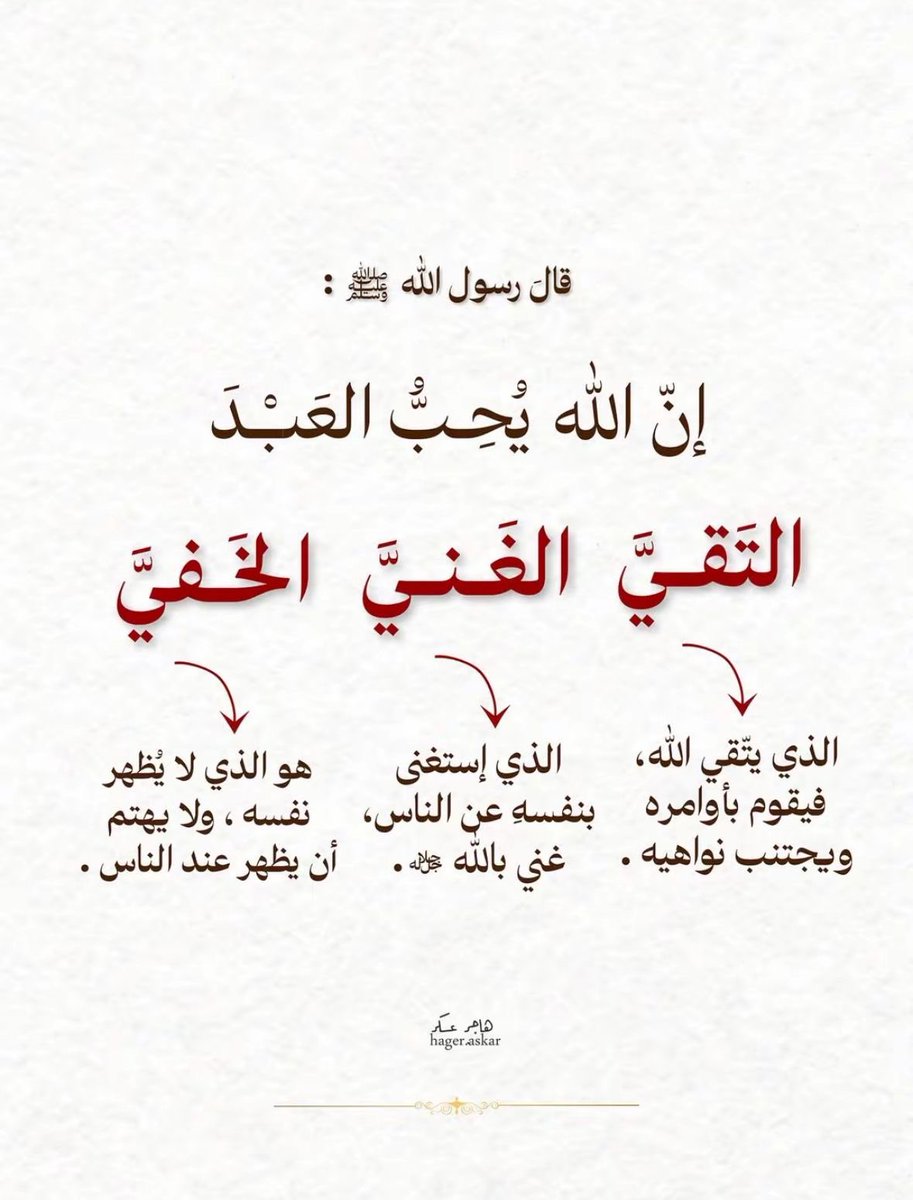 قالَ رسول الله ﷺ :
إنّ الله يُحِبُّ العَبْدَ
التَقيَّ الغَنيَّ الخَفيَّ
الذي يتّقي الله،
فيقوم بأوامره
ويجتنب نواهيه .
الذي إستغنى
بنفسهِ عن الناس،
غني بالله ﷻ .
هو الذي لا يُظهر
نفسه ، ولا يهتم
أن يظهر عند الناس .
هاجر عسكر
hager.askar